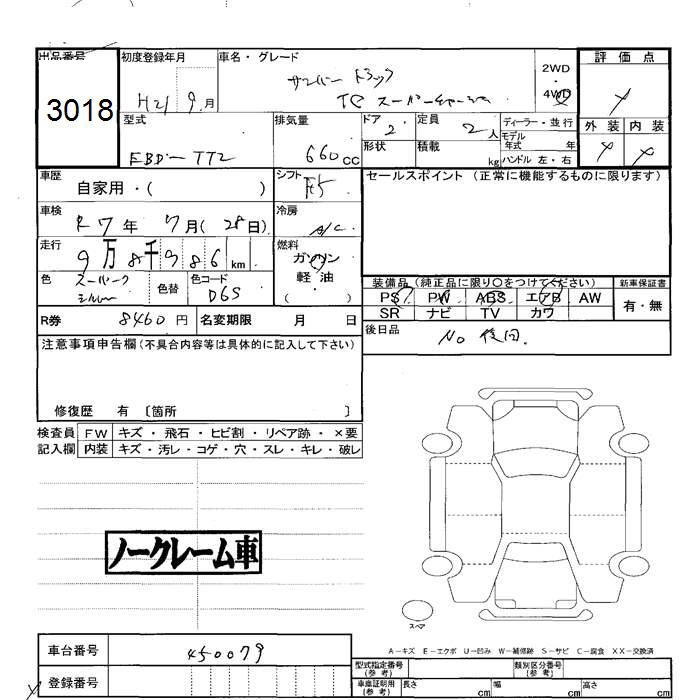 出品番号
3018
初度登録年月
H21 9月
車名・グレード
サンバー トラック
TC スーパーチャージャー
2WD
・
4WD
評価点
外装 内装
型式
EBD-TT2
排気量
660cc
ドア
2
形状
定員
2人
積載
kg
ディーラー・並行
モデル
年式 年
ハンドル 左・右
車歴
自家用・( )
シフト
F5
車検
R7年 7月(28日)
冷房
A/C
走行
9万8千986km
燃料
ガソリン
軽・油
( )
色
スパーク
シルバー
色替
色コード
D6S
R券 8460円
名変期限 月 日
セールスポイント(正常に機能するものに限ります)
装備品(純正品に限り○をつけてください)
新車保証書
PS PW ABS エアB AW
SR ナビ TV カワ
有・無
後日品
No 後日
注意事項申告欄(不具合内容等は具体的に記入して下さい)
修復歴 有 〔箇所 〕
検査員 FW キズ・飛石・ヒビ割・リペア跡・×要
記入欄 内装 キズ・汚レ・コゲ・穴・スレ・キレ・破レ
ノークレーム車
スペア
A-キズ E-エクボ U-凹み W-補修跡 S-サビ C-腐食 XX-交換済
車台番号 450079
登録番号
型式指定番号
(参考)
類別区分番号
(参考)
車庫証明用
(参考)
長さ cm 幅 cm 高さ cm